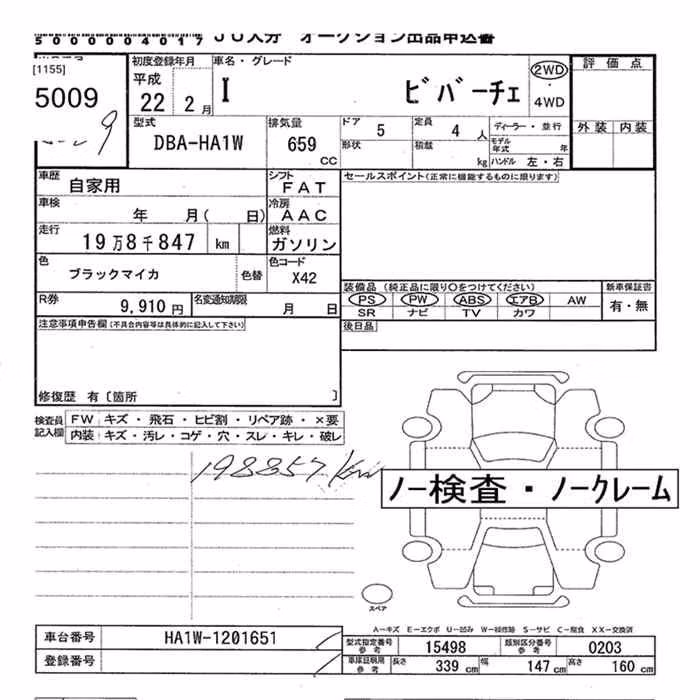 5000004017 JU大分 オークション出品申込書
[1155]
5009
9
初度登録年月 車名・グレード
平成
22 2月 I ビバーチェ 2WD ・ 4WD
評価点
外装 内装
型式 DBA-HA1W
排気量 659 CC
ドア 5 定員 4 人
形状 積載 kg
ディーラー・並行
モデル年式 年
ハンドル 左・右
車歴 自家用
シフト FAT
車検 年 月( 日)
冷房 AAC
走行 19万8千847 km
燃料 ガソリン
色 ブラックマイカ 色替
色コード X42
R券 9,910円
名変通知期限 月 日
セールスポイント(正常に機能するものに限ります)
装備品(純正品に限り○をつけてください)
PS PW ABS エアB AW
SR ナビ TV カワ
新車保証書
有・無
後日品
注意事項申告欄(不具合内容等は具体的に記入して下さい)
修復歴 有〔箇所 〕
検査員記入欄
FW キズ・飛石・ヒビ割・リペア跡・×要
内装 キズ・汚レ・コゲ・穴・スレ・キレ・破レ
198857km
ノー検査・ノークレーム
スペア
A-キズ E-エクボ U-凹み W-補修跡 S-サビ C-腐食 XX-交換済
車台番号 HA1W-1201651
登録番号
型式指定番号参考 15498
類別区分番号参考 0203
車庫証明用参考 長さ 339 cm 幅 147 cm 高さ 160 cm